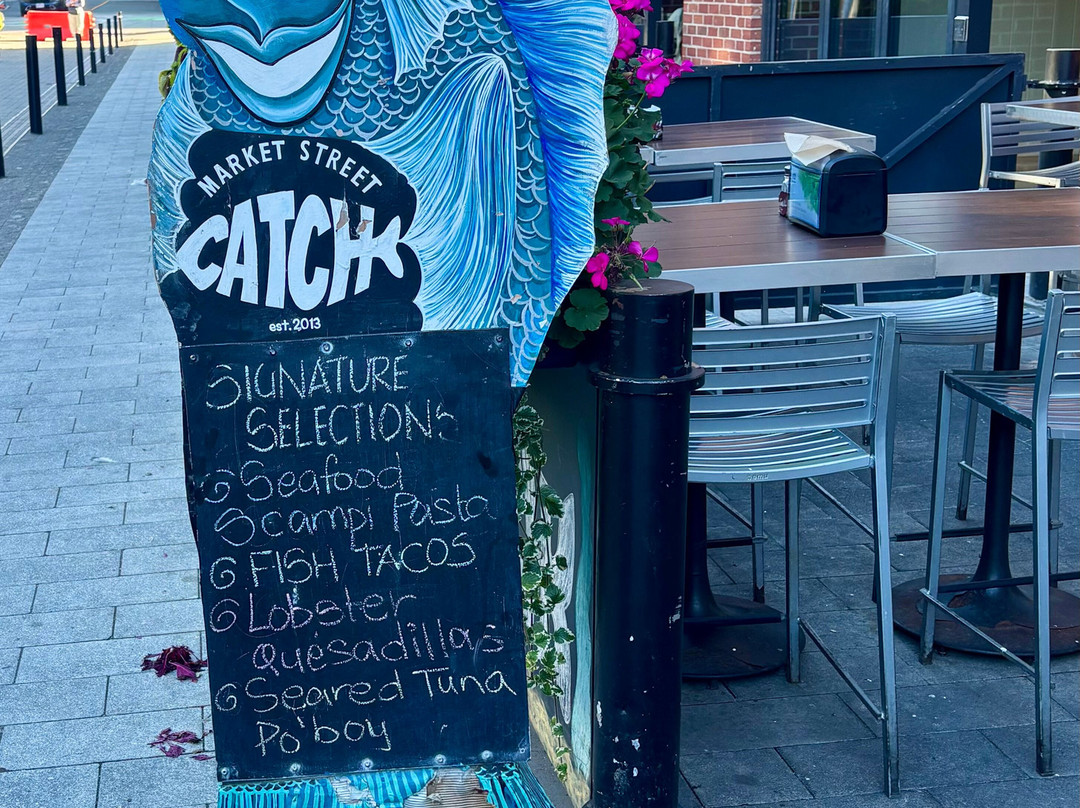 MARKET STREET
CATCH
est. 2013
SIGNATURE
SELECTIONS
Seafood
Scampi Pasta
FISH TACOS
Lobster
Quésadillas
Seared Tuna
Po'boy